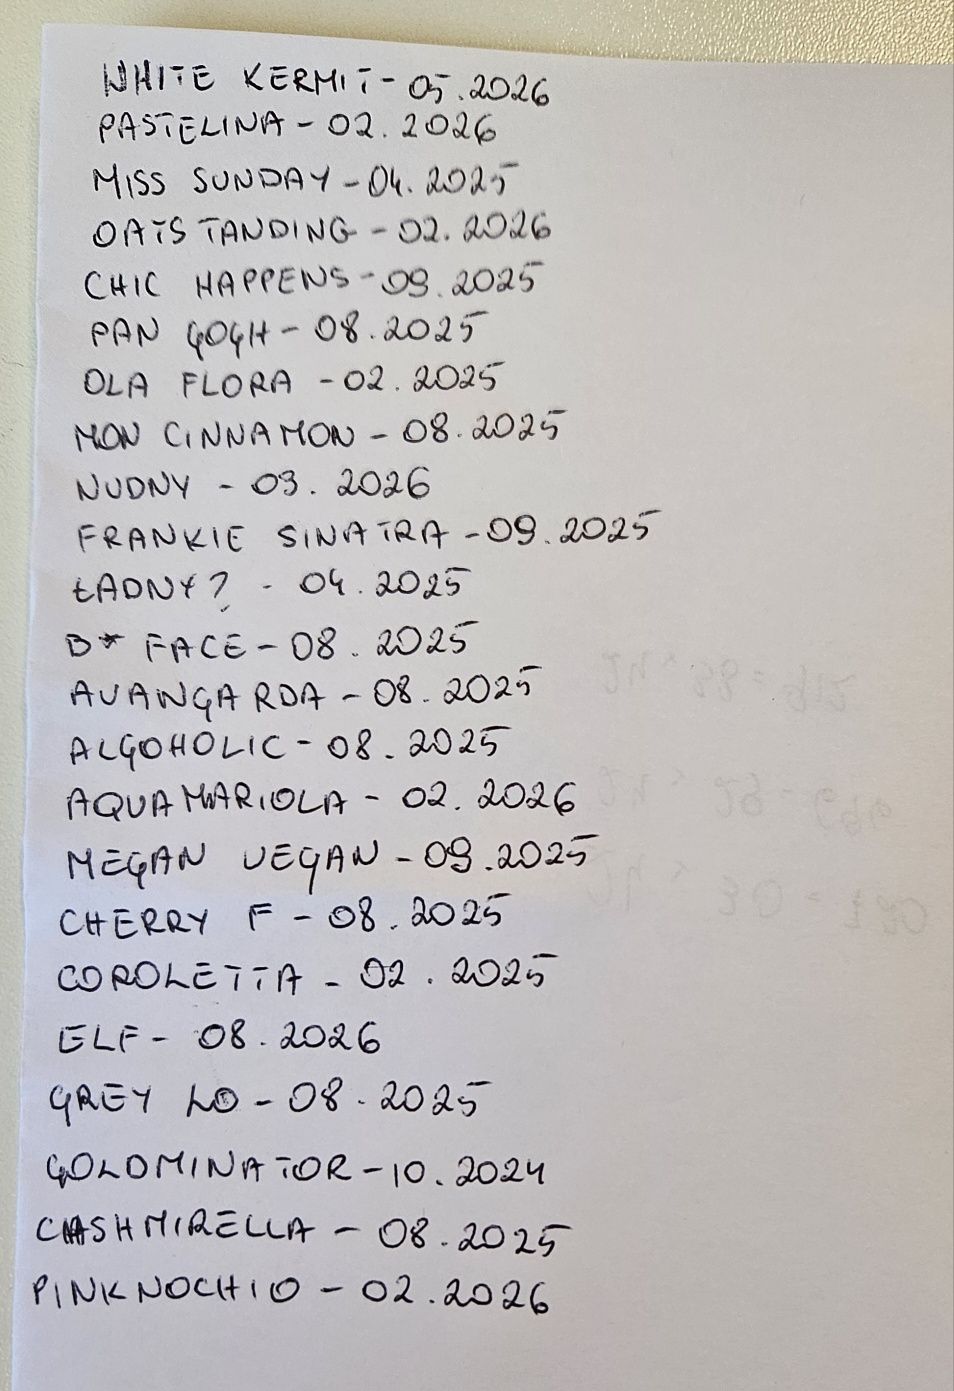 WHITE KERMIT - 05.2026
PASTELINA - 02.2026
MISS SUNDAY - 04.2025
OATSTANDING - 02.2026
CHIC HAPPENS - 09.2025
PAN GOGH - 08.2025
OLA FLORA - 02.2025
MON CINNAMON - 08.2025
NUDNY - 03.2026
FRANKIE SINATRA - 09.2025
ŁADNY? - 04.2025
B* FACE - 08.2025
AVANGARDA - 08.2025
ALGOHOLIC - 08.2025
AQUAMARIOLA - 02.2026
MEGAN VEGAN - 09.2025
CHERRY F - 08.2025
COROLETTA - 02.2025
ELF - 08.2026
GREY LO - 08.2025
GOLDMINATOR - 10.2024
CASHMIRELLA - 08.2025
PINKNOCHIO - 02.2026